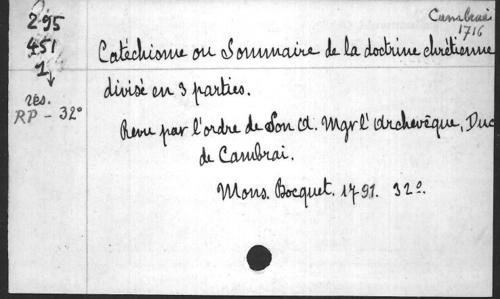 Cambrai
1716
295
451
1
rés.
RP - 32°
Catéchisme ou Sommaire de la doctrine chrétienne
divisé en 3 parties.
Revu par l'ordre de Son A. Mgr l'Archevêque, Duc
de Cambrai.
Mons. Bocquet. 1791. 32°.